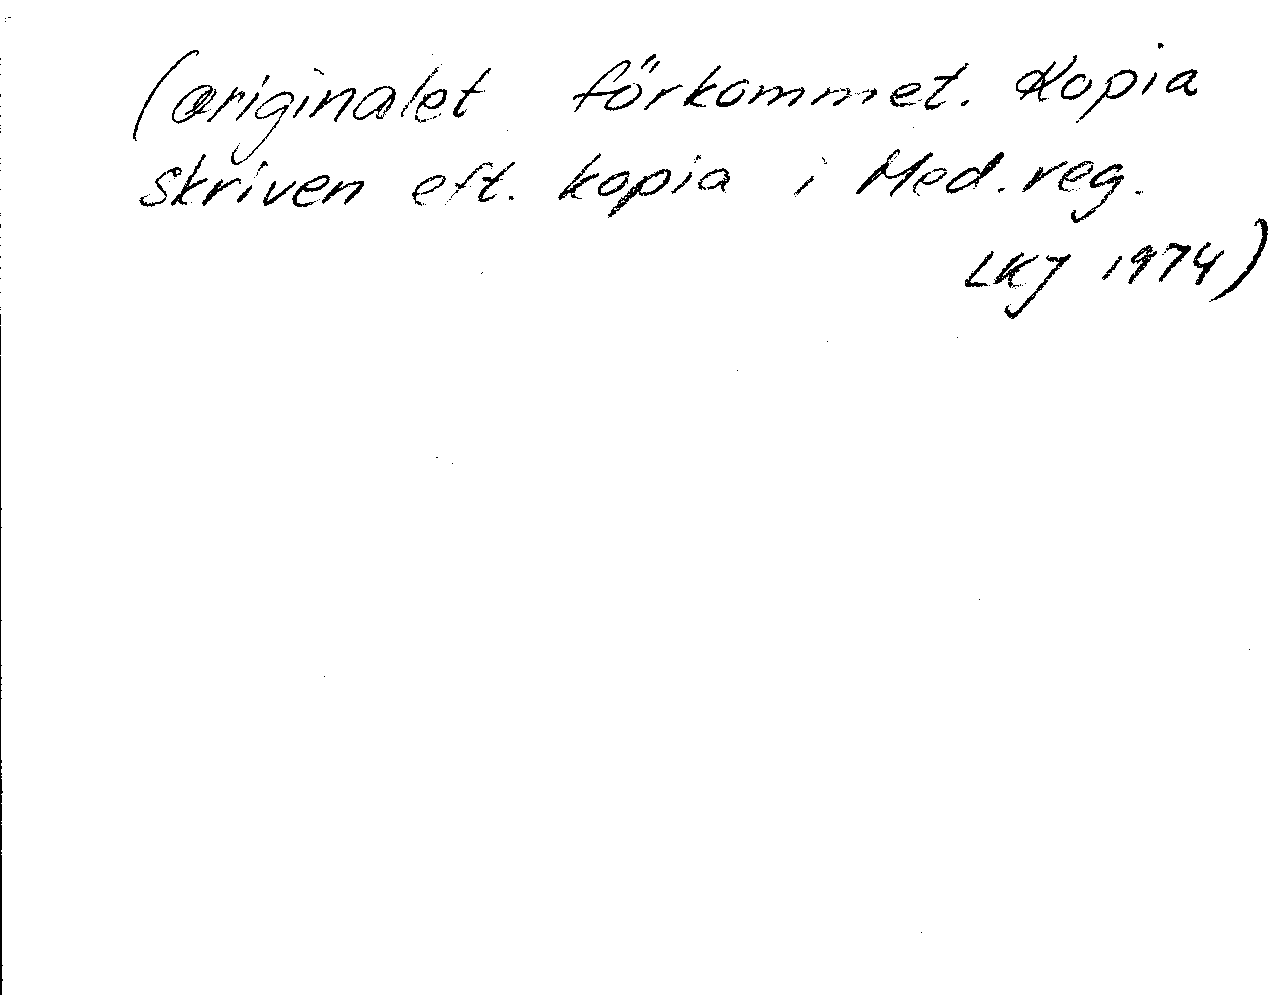 (originalet förkommet. Kopia
skriven eft. kopia i Med.reg.
LKJ 1974)